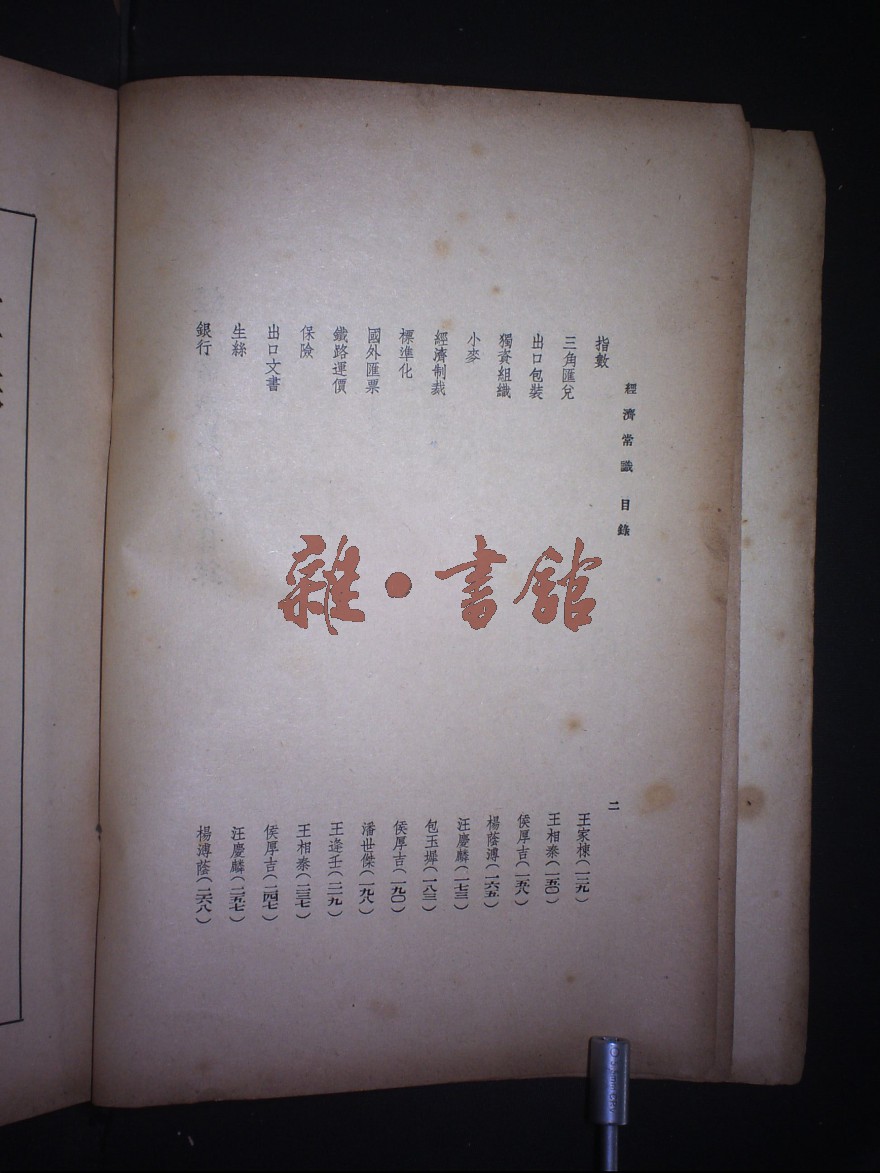 經濟常識 目錄 二
指數 王家棟(一二九)
三角匯兌 王相秦(一五〇)
出口包裝 侯厚吉(一五八)
獨資組織 楊蔭溥(一六五)
小麥 汪慶麟(一七三)
經濟制裁 包玉墀(一八三)
標準化 侯厚吉(一九〇)
國外匯票 潘世傑(一九八)
鐵路運價 王逢壬(二一九)
保險 王相秦(二三七)
出口文書 侯厚吉(二四七)
生絲 汪慶麟(二五七)
銀行 楊溥蔭(二六八)
雜•書館